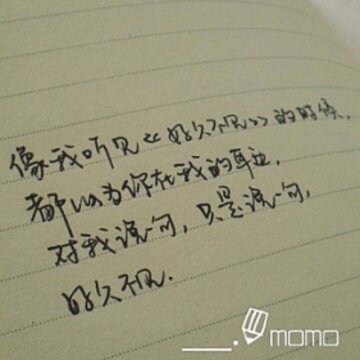 像我听见《好久不见》的时候，
都以为你在我的耳边，
对我说一句，只是说一句，
好久不见.
____. momo